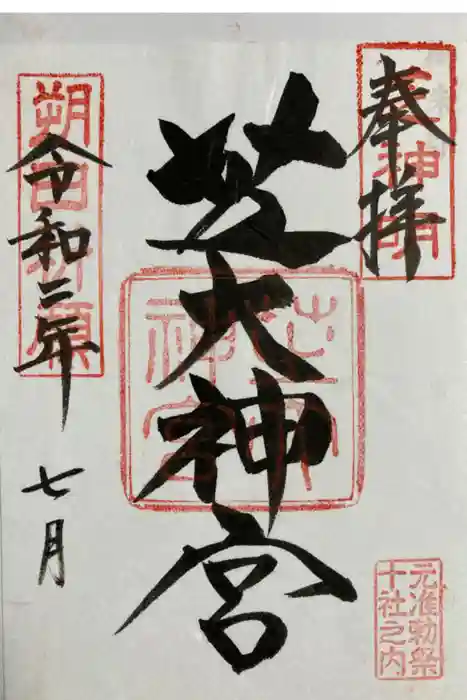 奉拝
元神明
芝大神宮
芝大神宮
元准勅祭
十社之内
朔日祈願
令和二年
七月